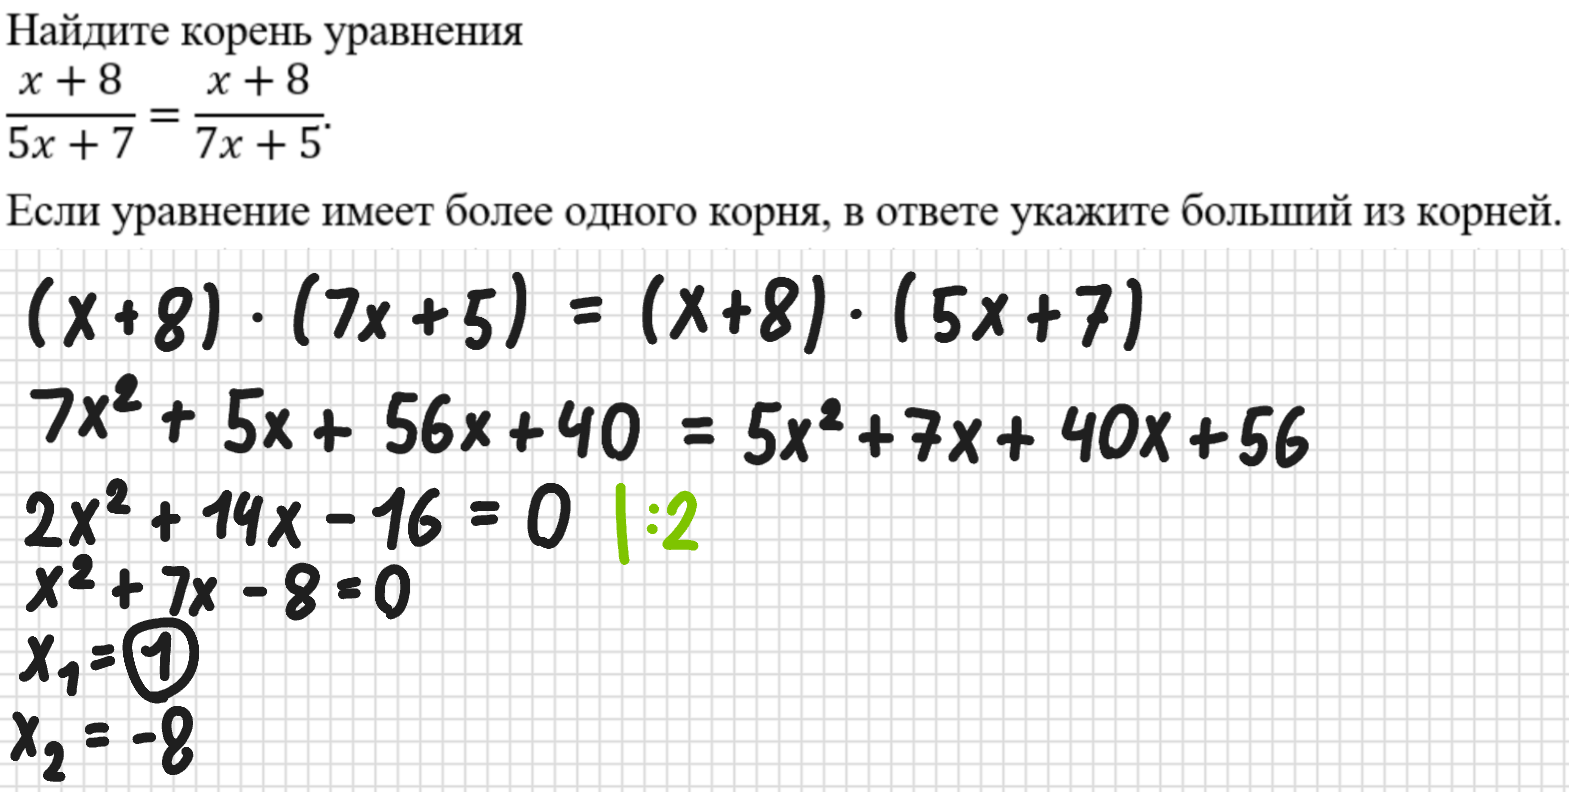 Найдите корень уравнения
x + 8 / 5x + 7 = x + 8 / 7x + 5.
Если уравнение имеет более одного корня, в ответе укажите больший из корней.
(x+8) · (7x+5) = (x+8) · (5x+7)
7x² + 5x + 56x + 40 = 5x² + 7x + 40x + 56
2x² + 14x - 16 = 0 |:2
x² + 7x - 8 = 0
x₁ = 1
x₂ = -8